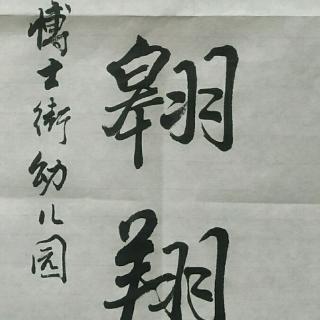 博士街幼儿园
翱翔